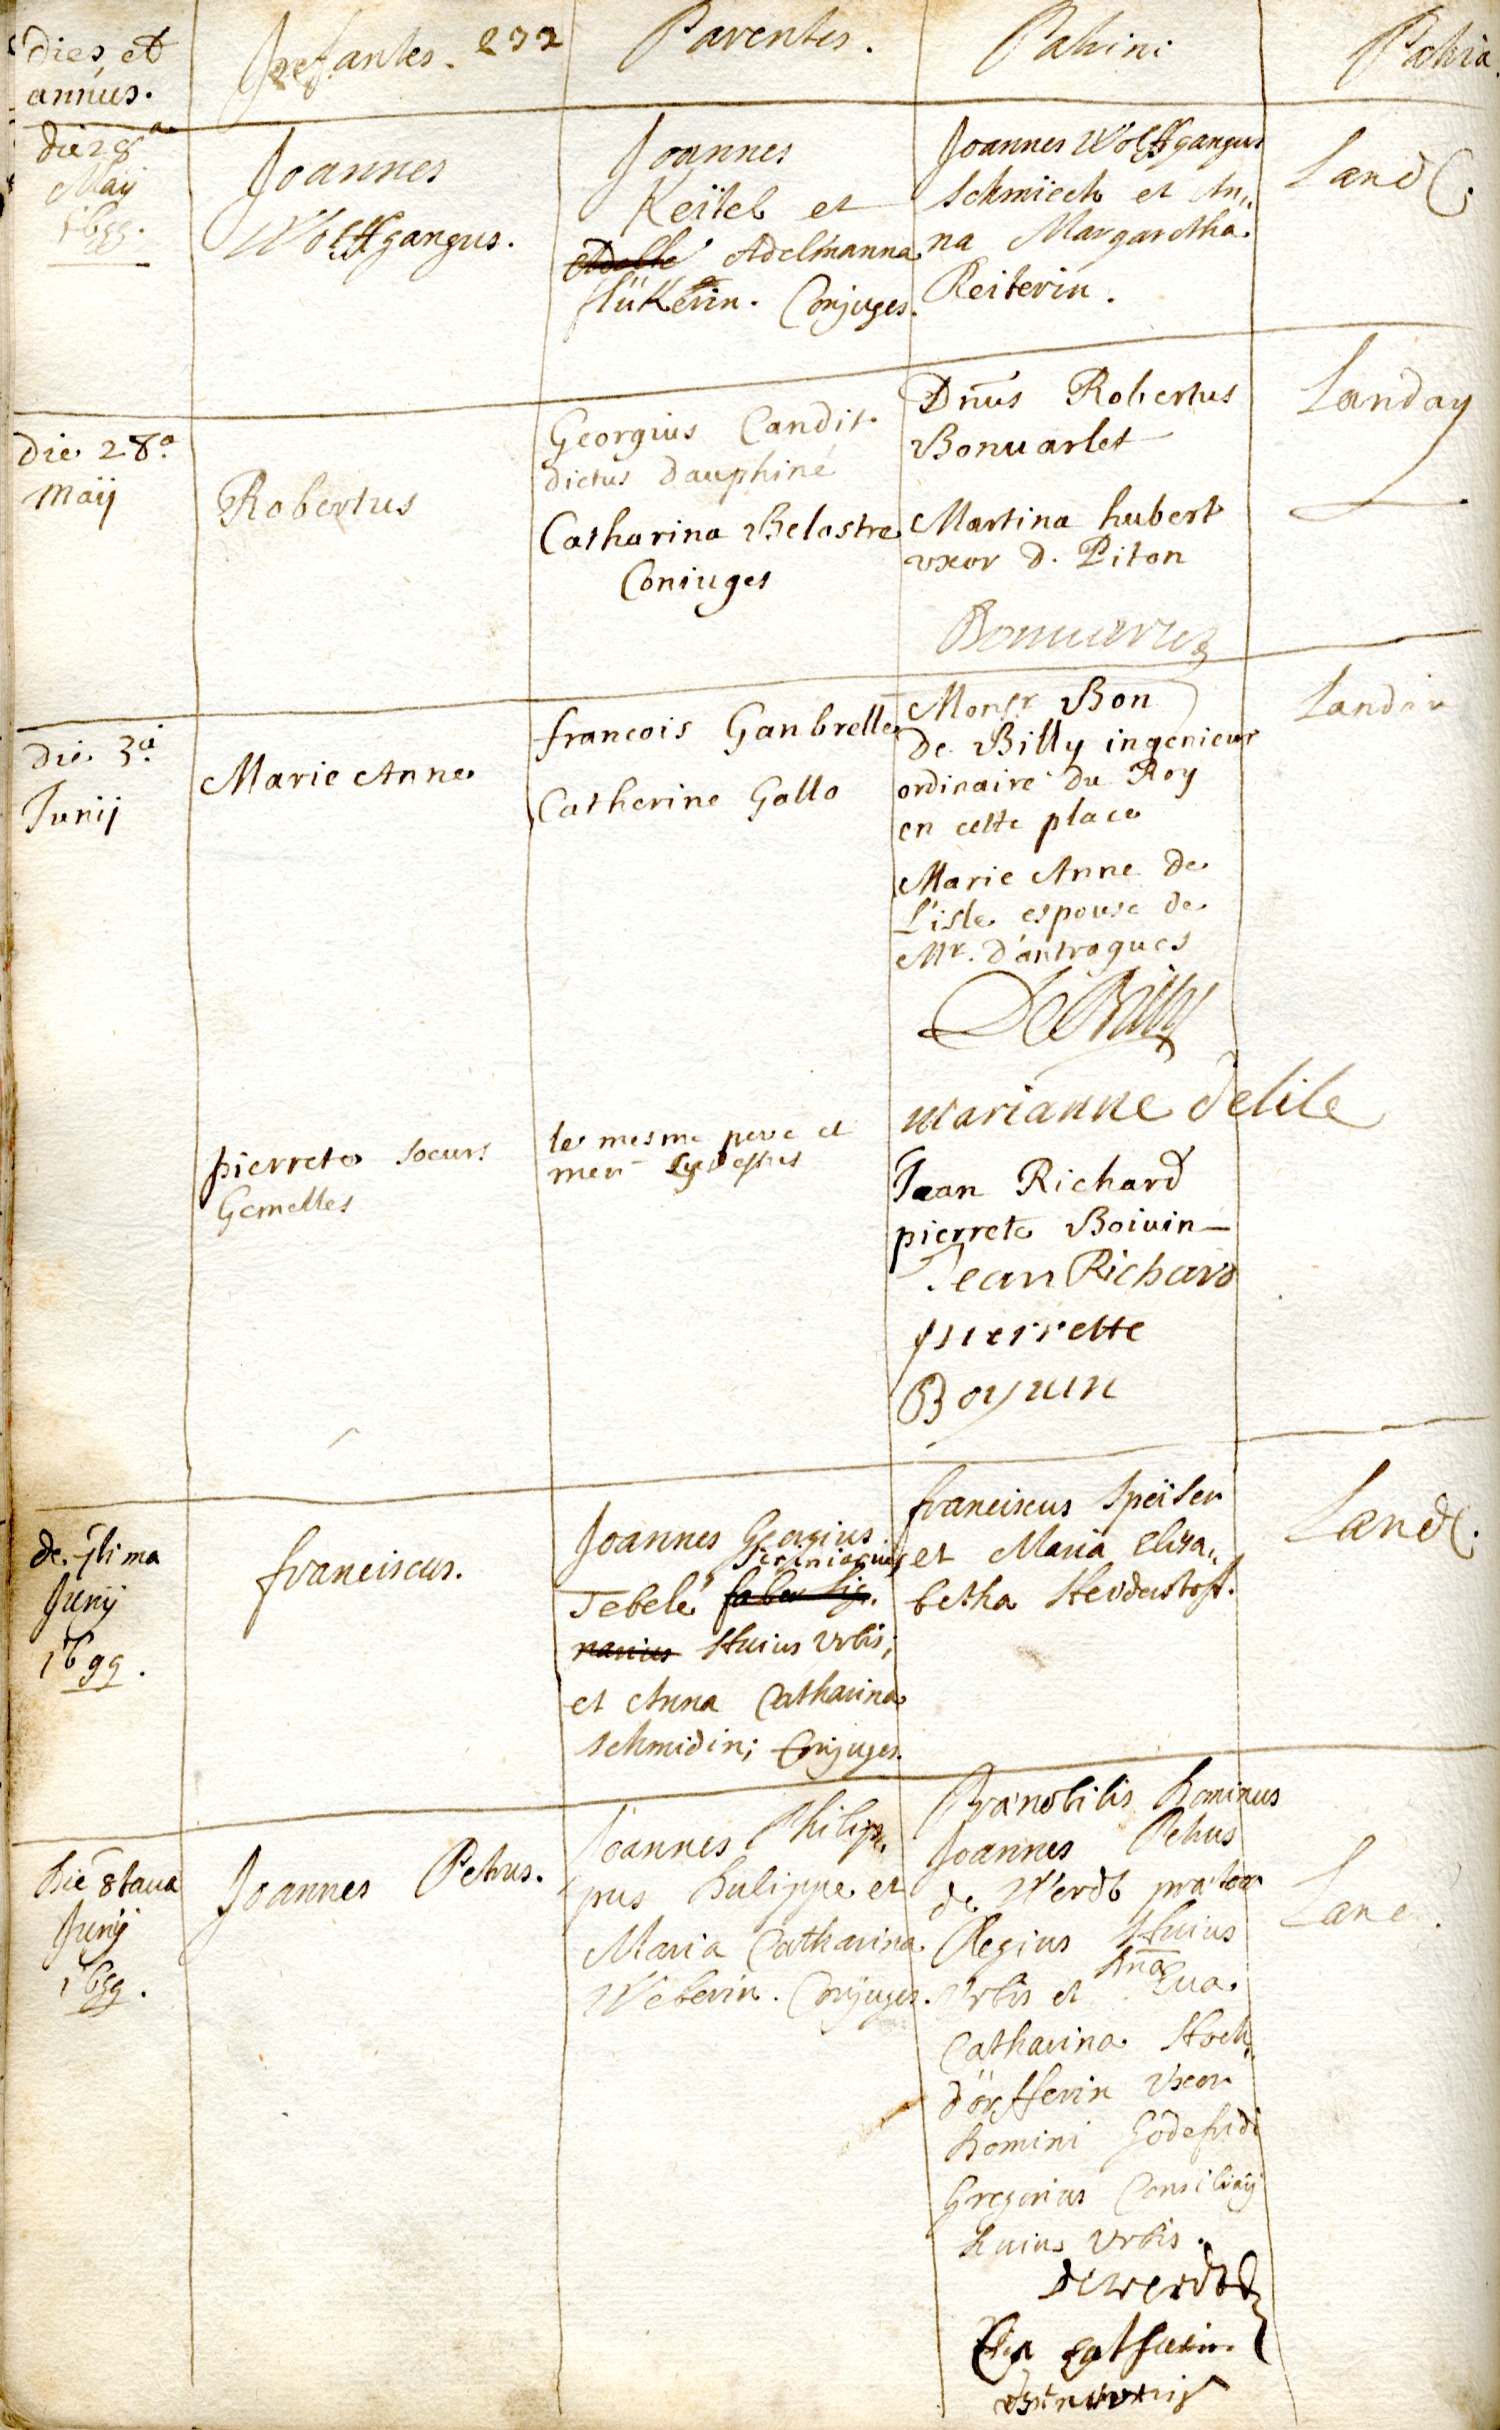 dies et
annus.
Infantes. 232
Parentes.
Patrini
Patria
die 28a
Maÿ
1699.
Joannes
Wolffgangus.
Joannes
Keïtel et
Adelmanna
flükerin. Conjuges.
Joannes Wolffgangus
Schmiech et An„
na Margaretha
Reiterin.
Land.
Die 28a
Maÿ
Robertus
Georgius Candit
dictus dauphiné
Catharina Belastre
Coniuges
Dnūs Robertus
Bonuarlet
Martina hubert
vxor d. Piton
Landay
die 3a
Junij
Marie Anne
francois Ganbrelle
Catherine Gallo
Monsr Bon
de Billy ingenieur
ordinaire du Roy
en cette place
Marie Anne de
L'isle espouse de
Mr. d'antragues
De Billy
marianne delile
Landau
pierrete soeurs
Gemelles
le mesme pere et
mere cydessus
Jean Richard
pierrete Boiuin
Jean Richard
pierrette
Boyuin
Junij
1699.
franciscus.
Joannes Georgius
Tebele faber lig„
narius Huius Vrbis;
et Anna Catharina
Schmidin; Conjuges.
franciscus Speïser
et Maria Eliza„
betha Heiderstoff.
Land.
Die 8taua
Junij
1699.
Joannes Petrus.
Joannes Philip„
pus Hulippe et
Maria Catharina
Weberin. Conjuges.
Prænobilis Dominus
Joannes Petrus
de Werdt prætor
Regius Huius
Vrbis et Dna Eua
Catharina Hoch„
dörfferin Vxor
Domini Godefridi
Gregorius Consiliarij
huius Vrbis.
dewerdt
Land.